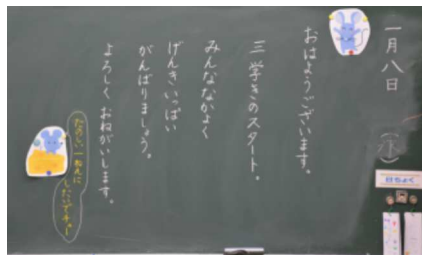 一月八日(水)
おはようございます。
三学きのスタート。
みんななかよく
げんきいっぱい
がんばりましょう。
よろしくおねがいします。
たのしい一ねんに
したいでチュー
にっちょく